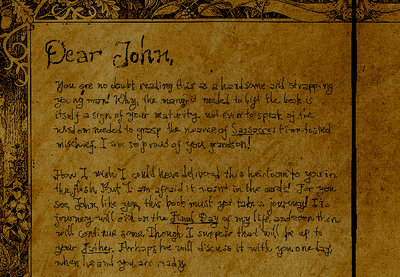 Dear John,
You are no doubt reading this as a handsome and strapping
young man! Why, the strength needed to lift the book is
itself a sign of your maturity, not ever to speak of the
wisdom needed to grasp the nuance of Sassacre's time-tested
mischief. I am so proud of you, grandson!
How I wish I could have delivered this heirloom to you in
the flesh. But I am afraid it wasn't in the cards! For you
see, John, like you, this book must yet take a journey! Its
journey will end on the Final Day of my life, and even then
will continue some. Though I suppose that will be up to
your Father. Perhaps he will discuss it with you one day,
when he and you are ready.